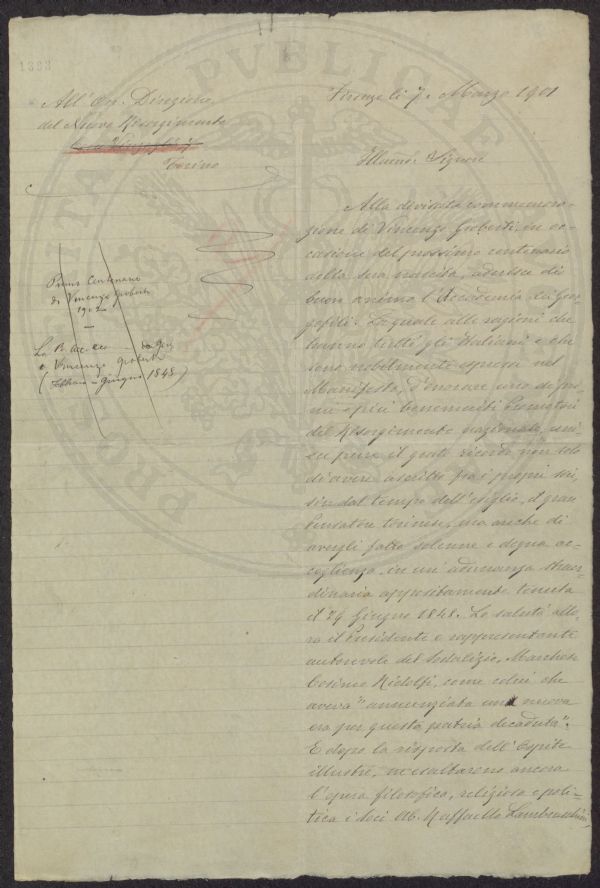 1393
All'On. Direzione
del Nuovo Risorgimento
Torino
Firenze li 7. Marzo 1901
Illmo Signore
Alla divisata commemora-
zione di Vincenzo Gioberti, in oc-
casione del prossimo centenario
dalla sua nascita, aderisce di
buon animo l'Accademia dei Geor-
gofili. La quale alle ragioni che
hanno tutti gli Italiani e che
sono nobilmente espresse nel
Manifesto, d'onorare uno dei pri-
mi e più benemeriti Promotori
del Risorgimento nazionale, uni-
sce pure il grato ricordo non solo
di avere ascritto fra i propri soci,
sin dal tempo dell'esiglio, il gran
Pensatore torinese, ma anche di
avergli fatto solenne e degna ac-
coglienza in un'adunanza straor-
dinaria appositamente tenuta
il 29 Giugno 1848. Lo salutò allo-
ra il Presidente e rappresentante
autorevole del Sodalizio, Marchese
Cosimo Ridolfi, come colui che
aveva "annunziata una nuova
era per questa patria decaduta".
E dopo la risposta dell'Ospite
illustre, ne esaltarono ancora
l'opera filosofica, religiosa e poli-
tica i Soci Ab. Raffaello Lambruschini,
Primo Centenario
di Vincenzo Gioberti
1902
La R. Acc.
e Vincenzo Gioberti
(Febbraio - Giugno 1848)
PROSPERITATI PVBLICAE